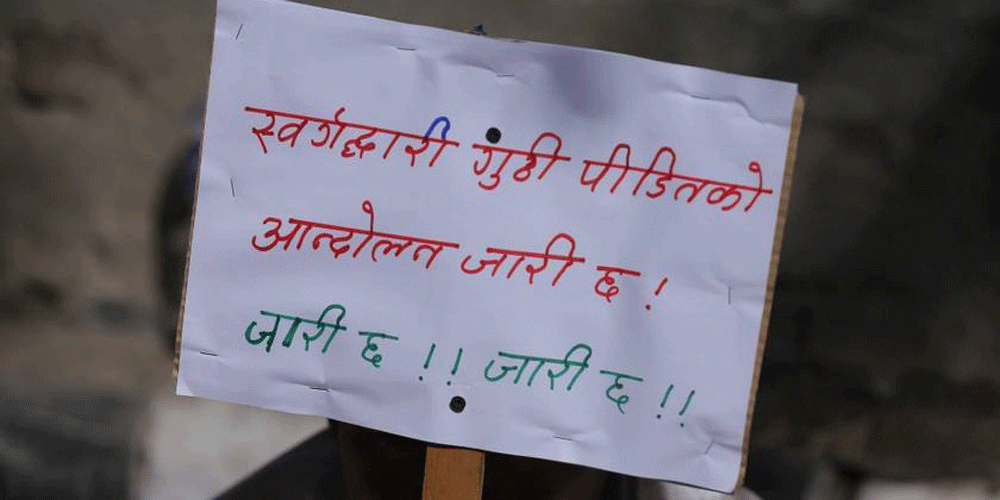 स्वर्गद्वारी गुठी पीडितको
आन्दोलन जारी छ !
जारी छ !! जारी छ !!